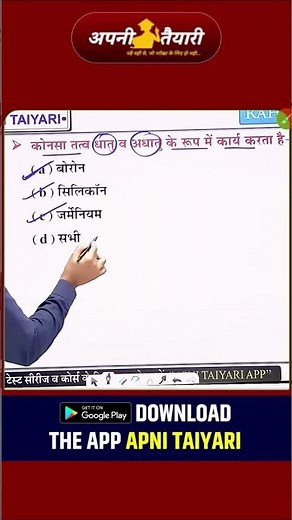 अपनी तैयारी
TAIYARI•
कोनसा तत्व धातु व अधातु के रूप में कार्य करता है-
(a) बोरोन
(b) सिलिकॉन
(c) जर्मेनियम
(d) सभी
टेस्ट सीरीज व कोर्स के TAIYARI APP”
GET IT ON
Google Play
DOWNLOAD
THE APP APNI TAIYARI